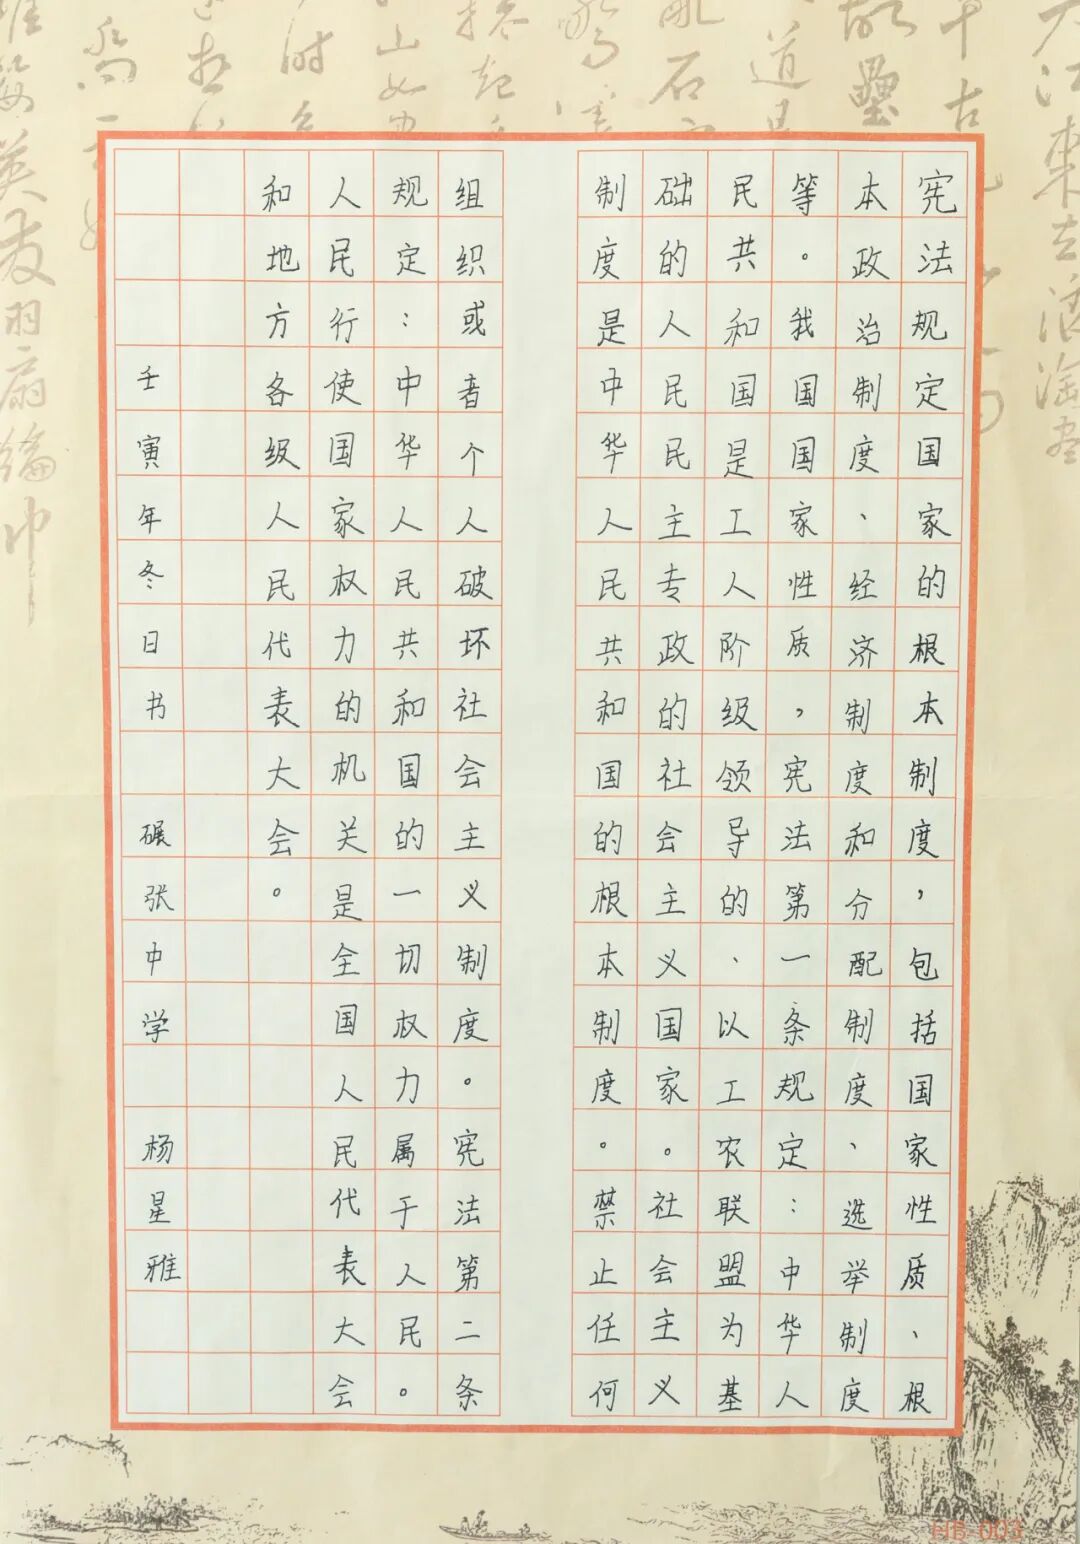 大江東去浪淘盡
千古
故壘
道是
英发羽扇綸巾
宪法规定国家的根本制度，包括国家性质、根
本政治制度、经济制度和分配制度、选举制度
等。我国国家性质，宪法第一条规定：中华人
民共和国是工人阶级领导的、以工农联盟为基
础的人民民主专政的社会主义国家。社会主义
制度是中华人民共和国的根本制度。禁止任何
组织或者个人破坏社会主义制度。宪法第二条
规定：中华人民共和国的一切权力属于人民。
人民行使国家权力的机关是全国人民代表大会
和地方各级人民代表大会。
壬寅年冬日书 碾张中学 杨星雅
HB-003